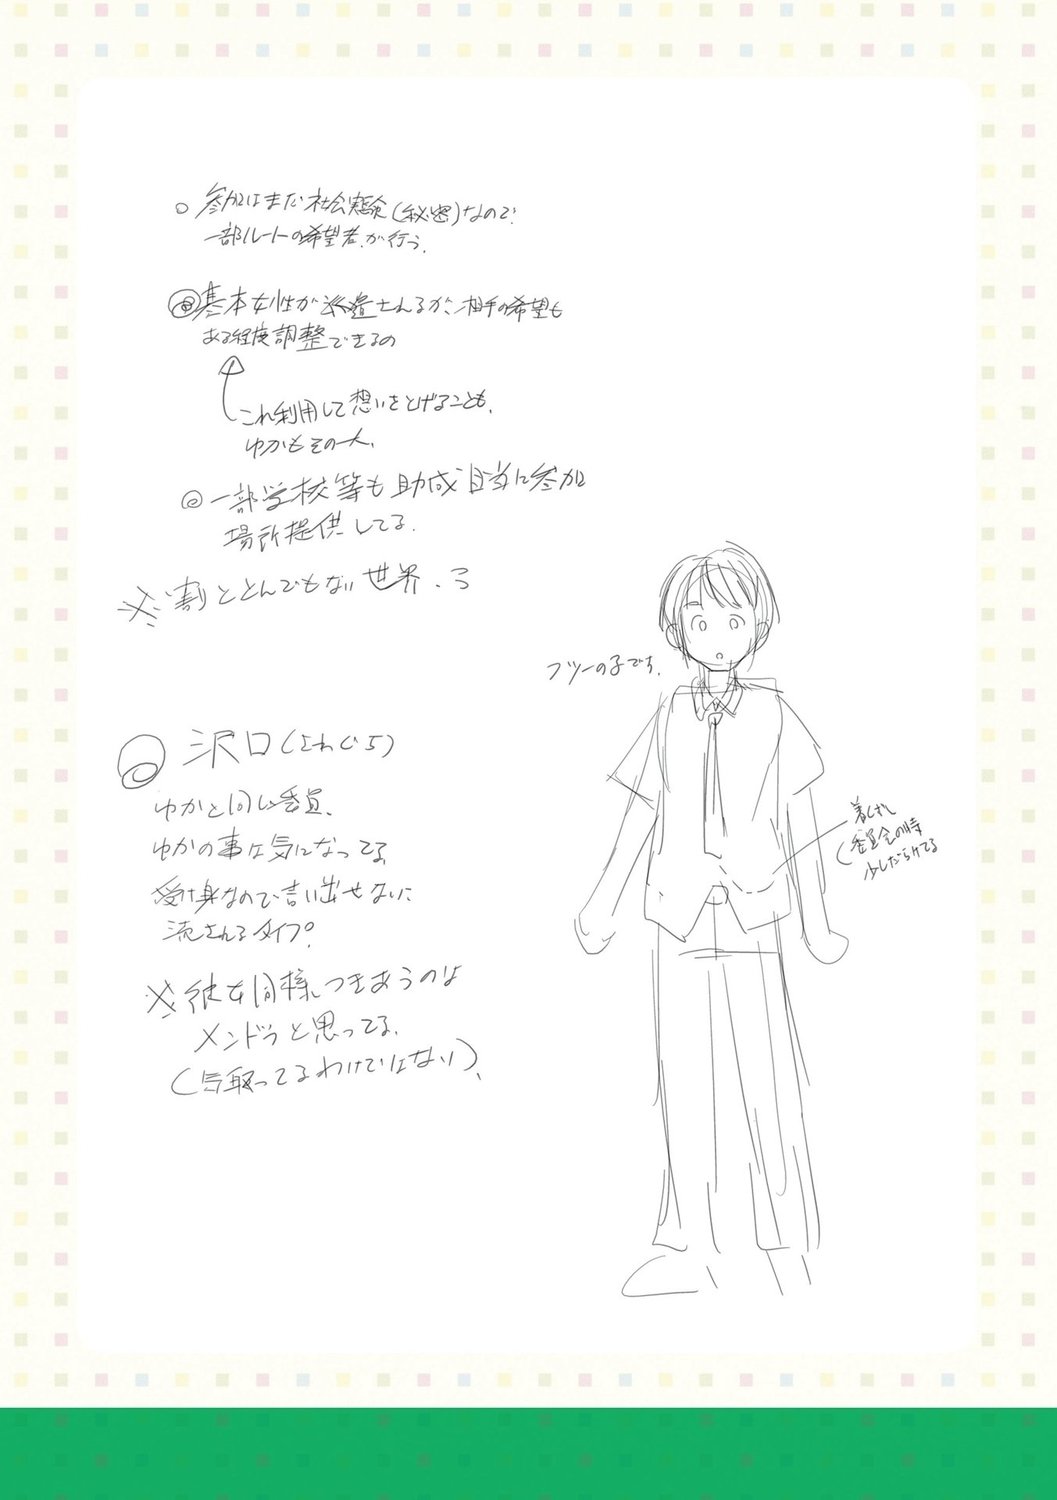 ○ 参加はまだ社会実験(秘密)なので
一部ルートの希望者が行う.
◎基本女性が派遣されるが、相手の希望も
ある程度調整できるの
これ利用して想いをとげることも.
ゆかもその一人.
◎一部学校等も助成目当に参加
場所提供してる.
※割ととんでもない世界.
フツーの子です.
沢口(さわぐち)
ゆかと同じ委員.
ゆかの事は気になってる
受け身なので言い出せないに
流されるタイプ?
※彼女同様つきあうのは
メンドウと思ってる.
(気取ってるわけではない).
着くずし
(委員会の時
少しだらけてる